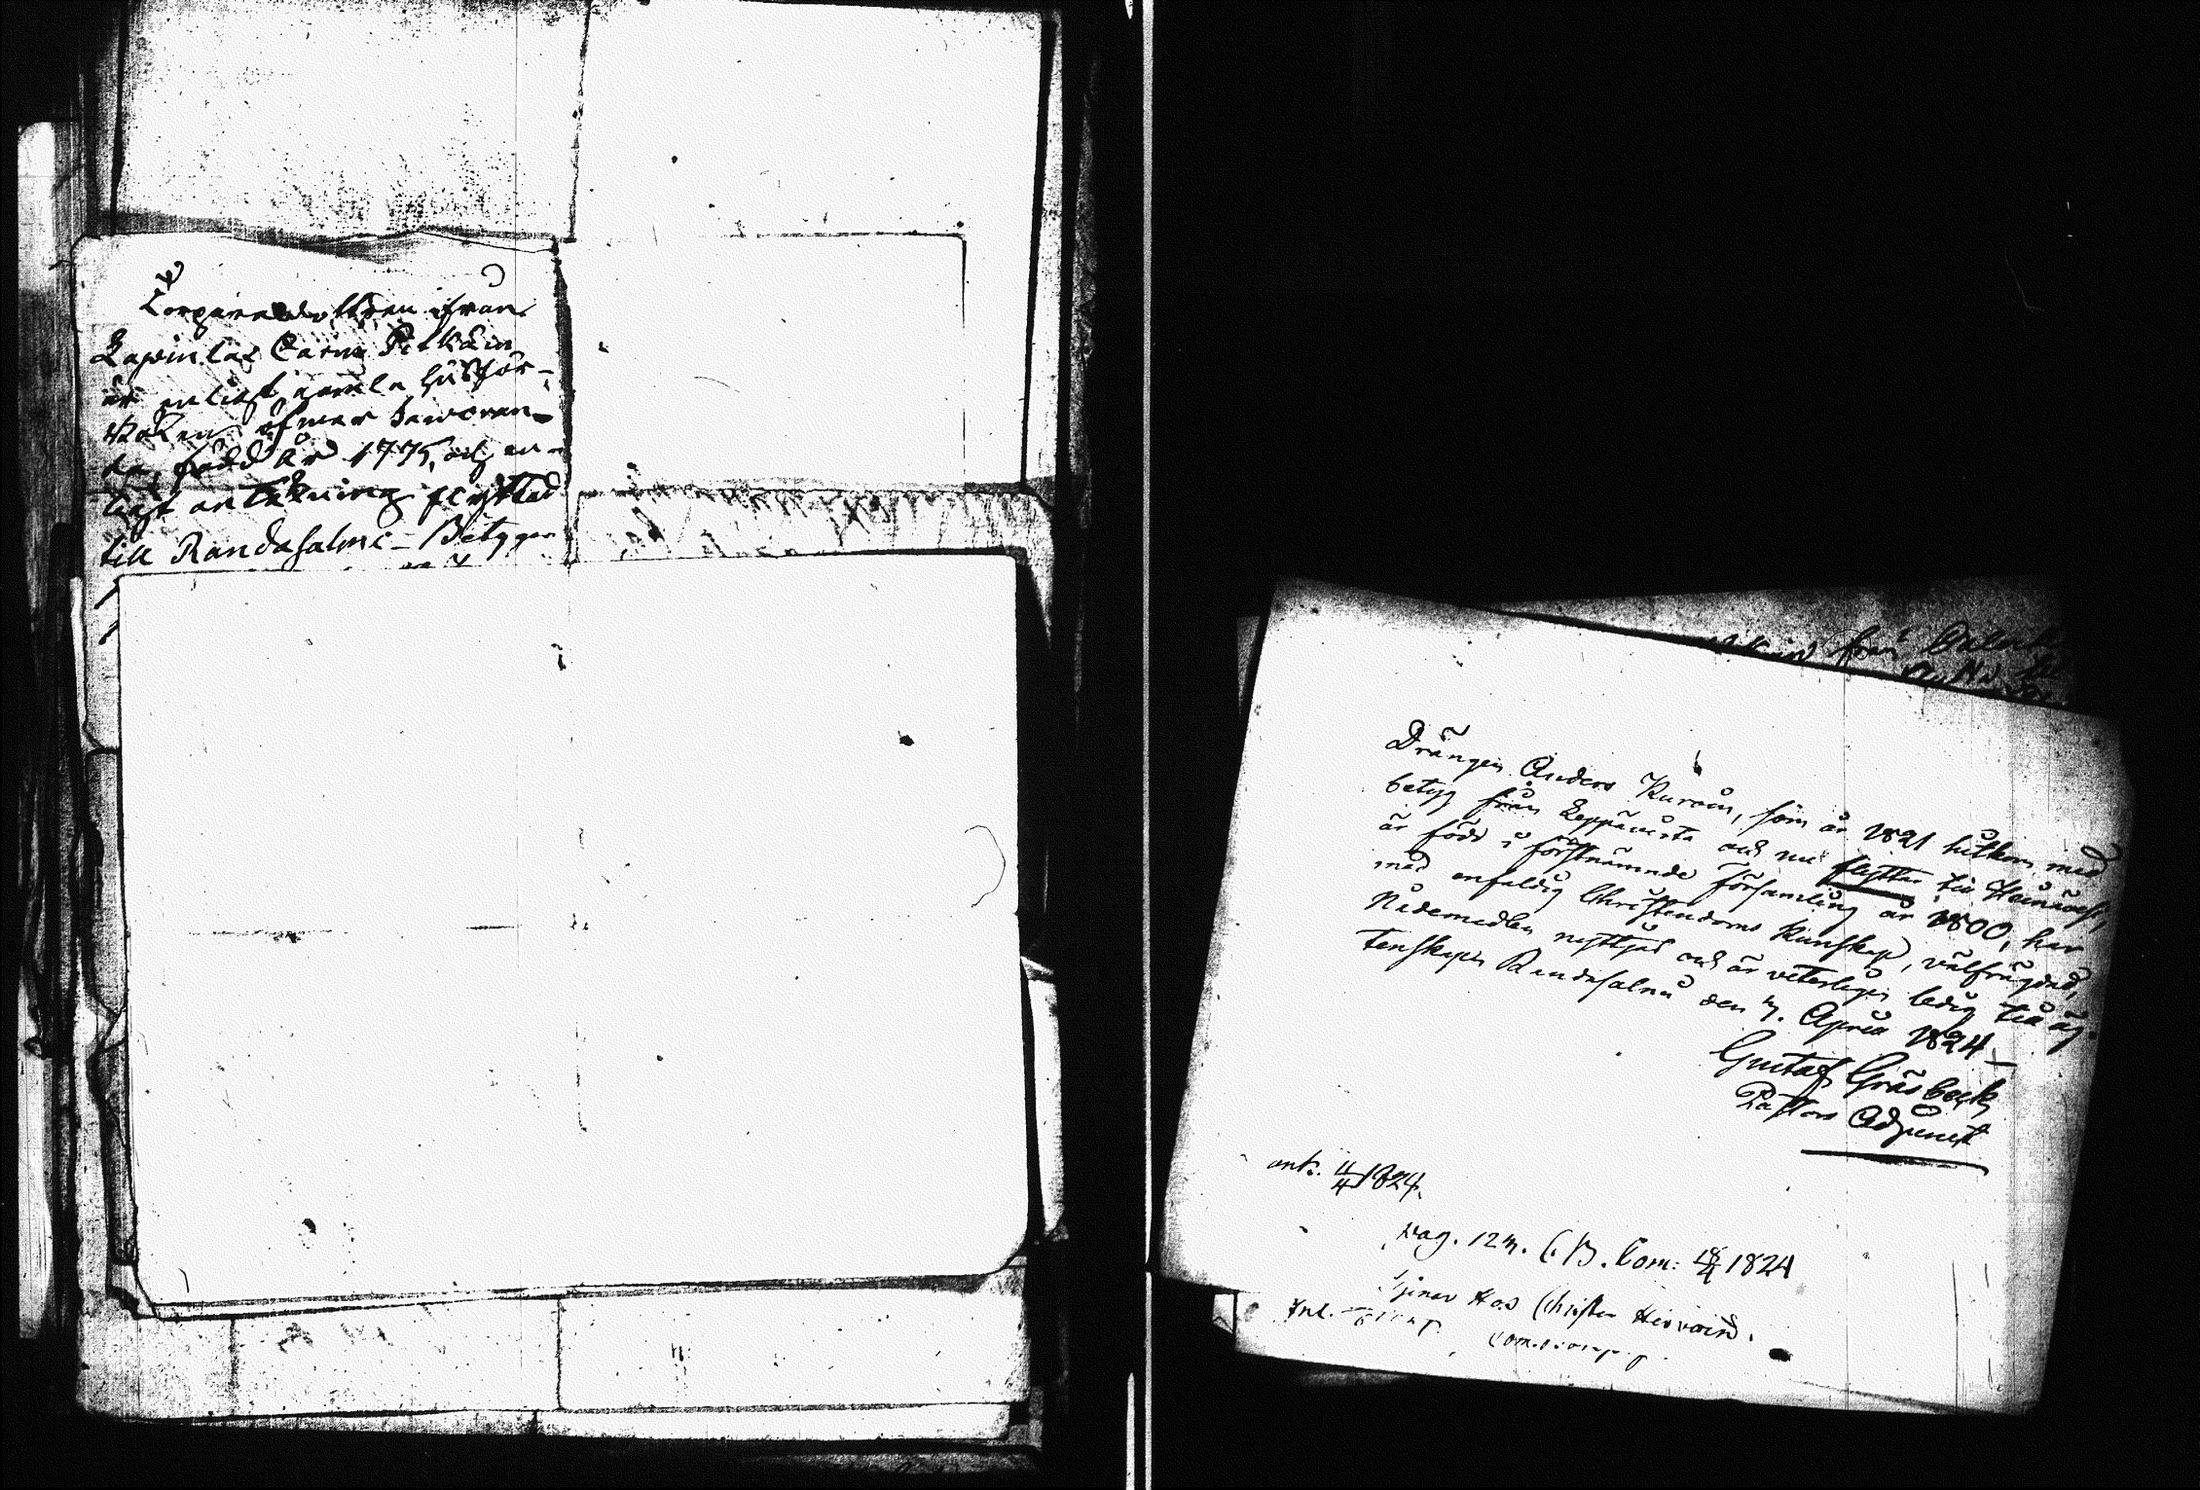 Torparedottren ifrån
Lapinlax Carin Pitkäin
är enligt gamla husför-
boken öfver Sawonran-
ta, född år 1775, och en-
ligt antekning flyttad
till Randasalmi - Betygar
från
Drängen Anders Kuroin, som år 1821 hitkom med
betyg från Leppävirta och nu flyttar till Heinävesi,
är född i förstnämnde församling år 1800, har
med enfaldig Christendoms kunskap, välfrägdad,
Nådemedlen nyttjat och är veterligen ledig till äg-
tenskapen Randasalmi den 7. April 1824 -
Gustaf Gråsbeck
Pastors Adjunct
ank. 11/4 1824.
pag. 127. C.B. Com: 18/4 1824
tjenar Hos Christer Hirvoin.